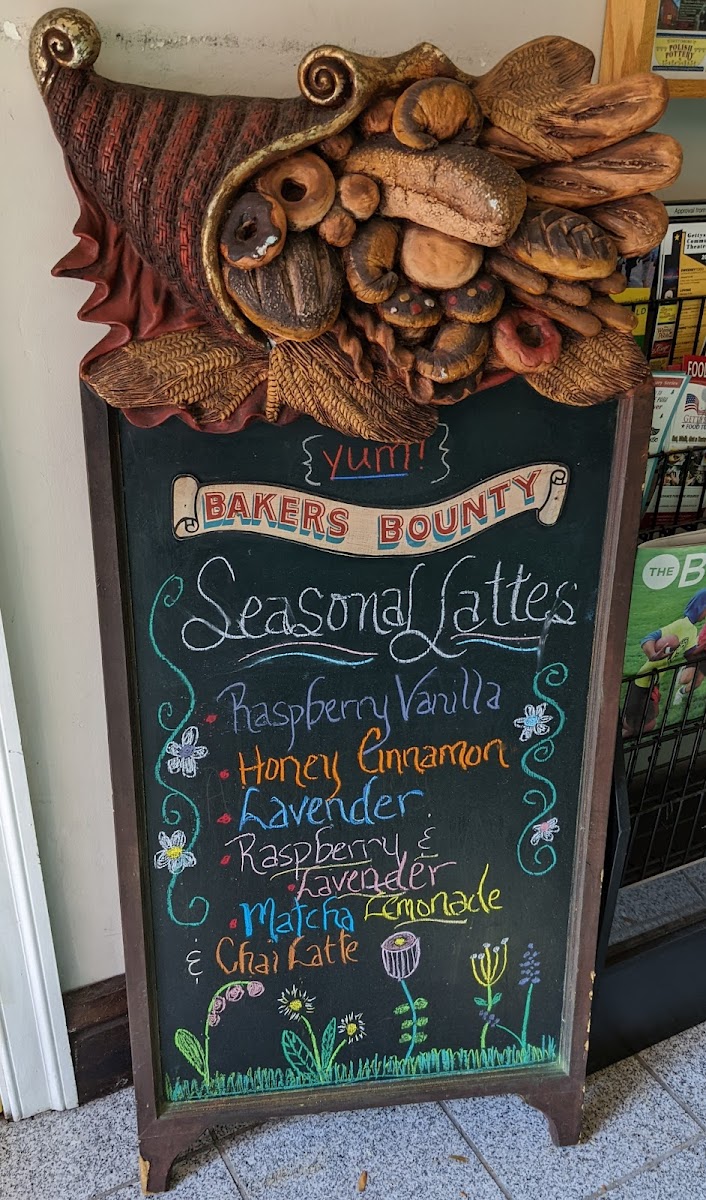 {yum!}
BAKERS BOUNTY
Seasonal Lattes
• Raspberry Vanilla
• Honey Cinnamon
• Lavender
• Raspberry &
• Lavender
Lemonade
• Matcha
& Chai Latte
POLISH
POTTERY
Gettys
Commu
Theatre
FOOD
THE B